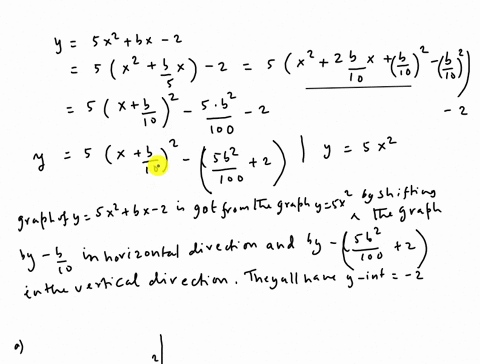 y = 5x² + bx - 2
= 5 (x² + b/5 x) - 2 = 5 (x² + 2 b/10 x + (b/10)² - (b/10)²) - 2
= 5 (x + b/10)² - 5·b²/100 - 2
y = 5 (x + b/10)² - (5b²/100 + 2) | y = 5x²
graph of y = 5x² + bx - 2 is got from the graph y = 5x² by shifting ^ the graph
by - b/10 in horizontal direction and by - (5b²/100 + 2)
in the vertical direction. They all have y-int = -2
a)
2